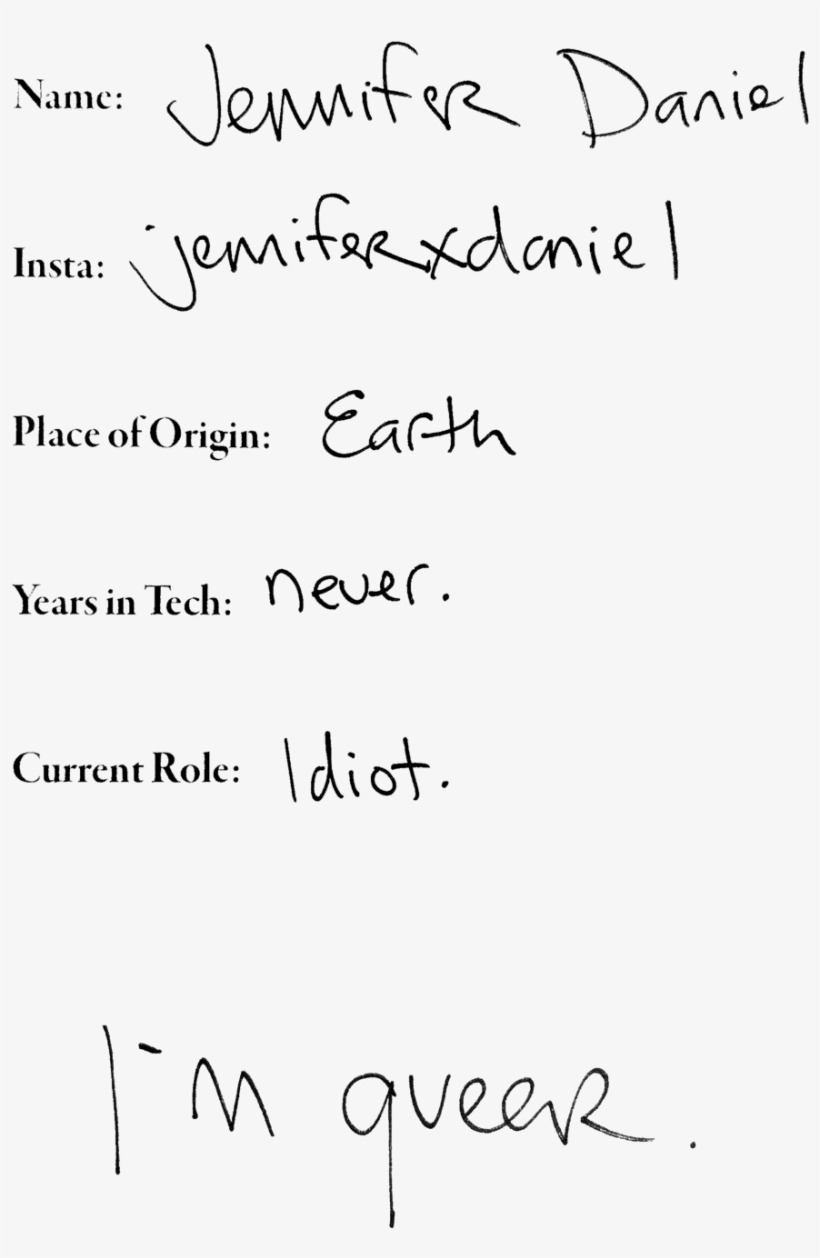 Name: Jennifer Daniel
Insta: jenniferxdaniel
Place of Origin: Earth
Years in Tech: never.
Current Role: Idiot.
I'm queer.